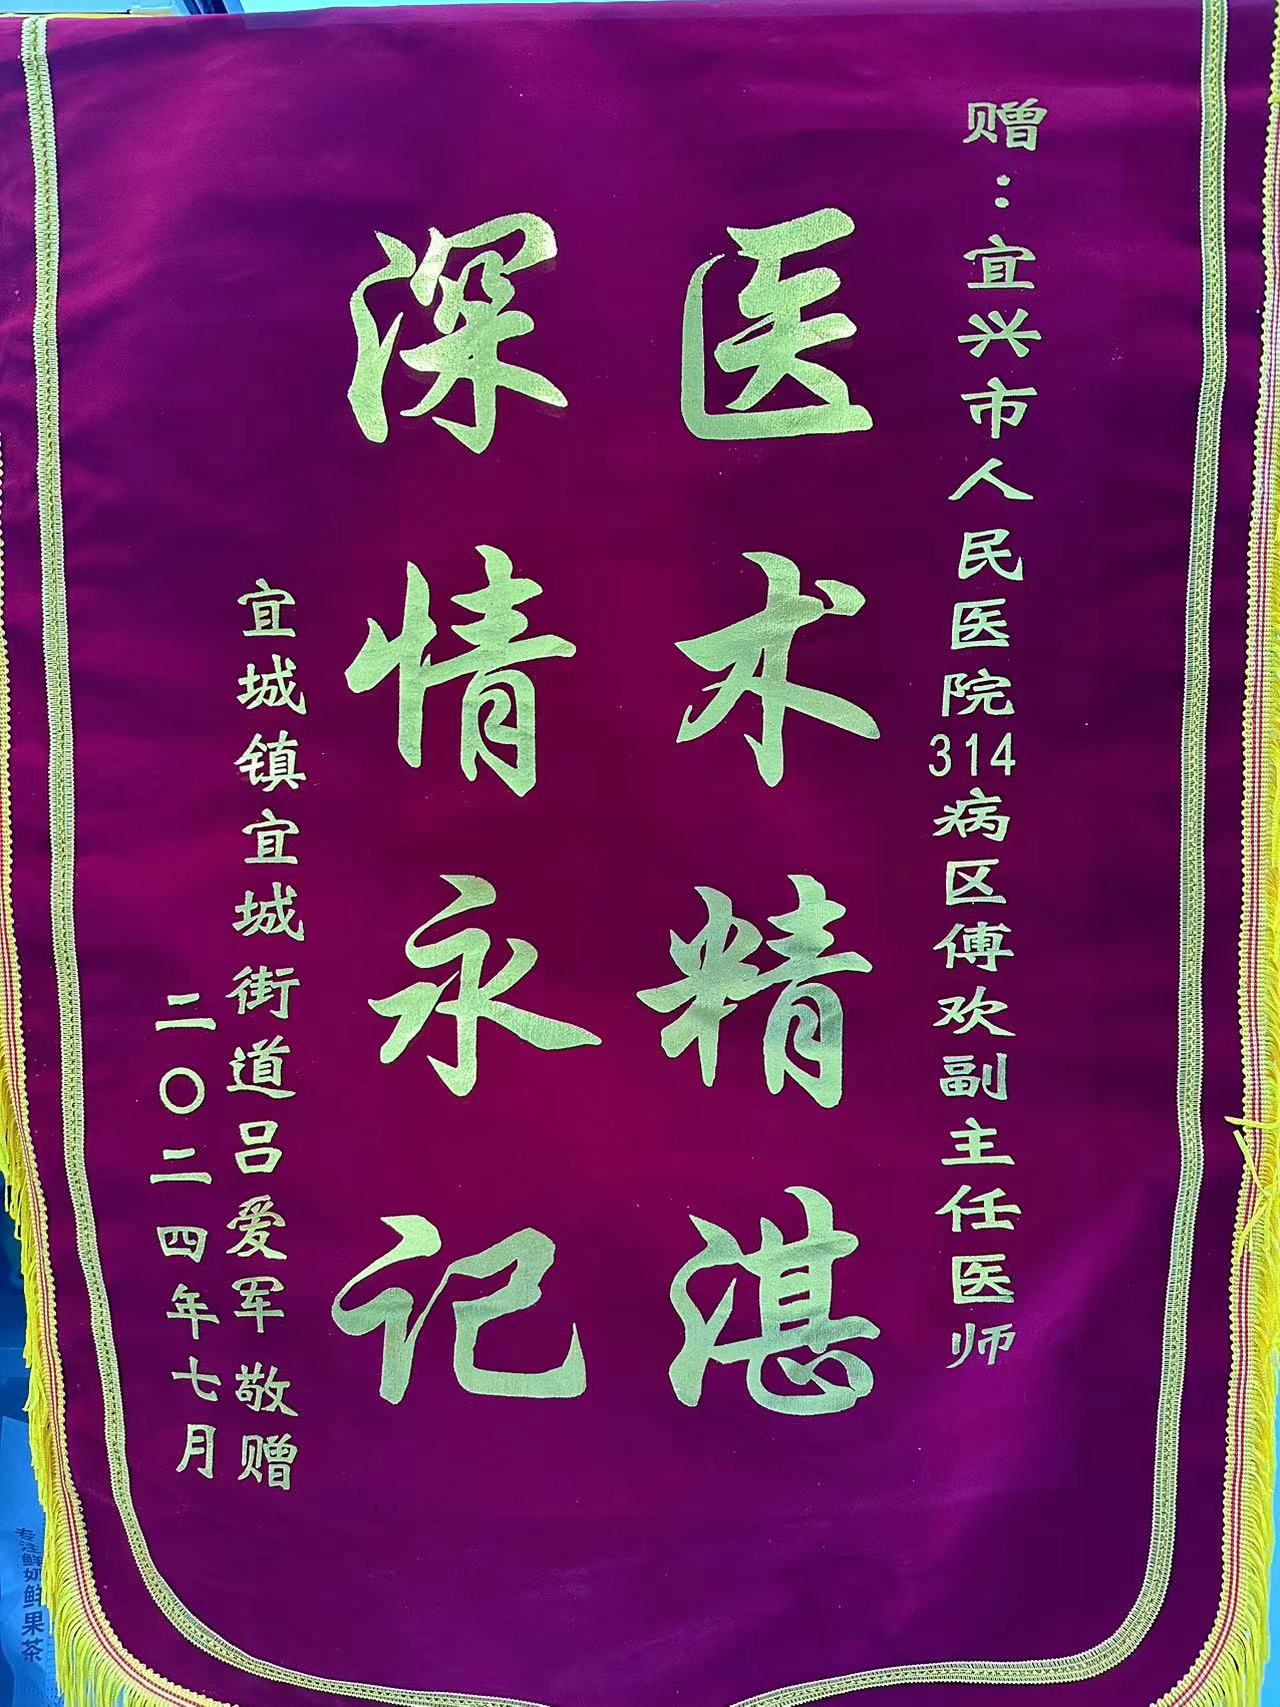 赠：宜兴市人民医院314病区傅欢副主任医师
医术精湛
深情永记
宜城镇宜城街道吕爱军 敬赠
二〇二四年七月
专注鲜奶鲜果茶